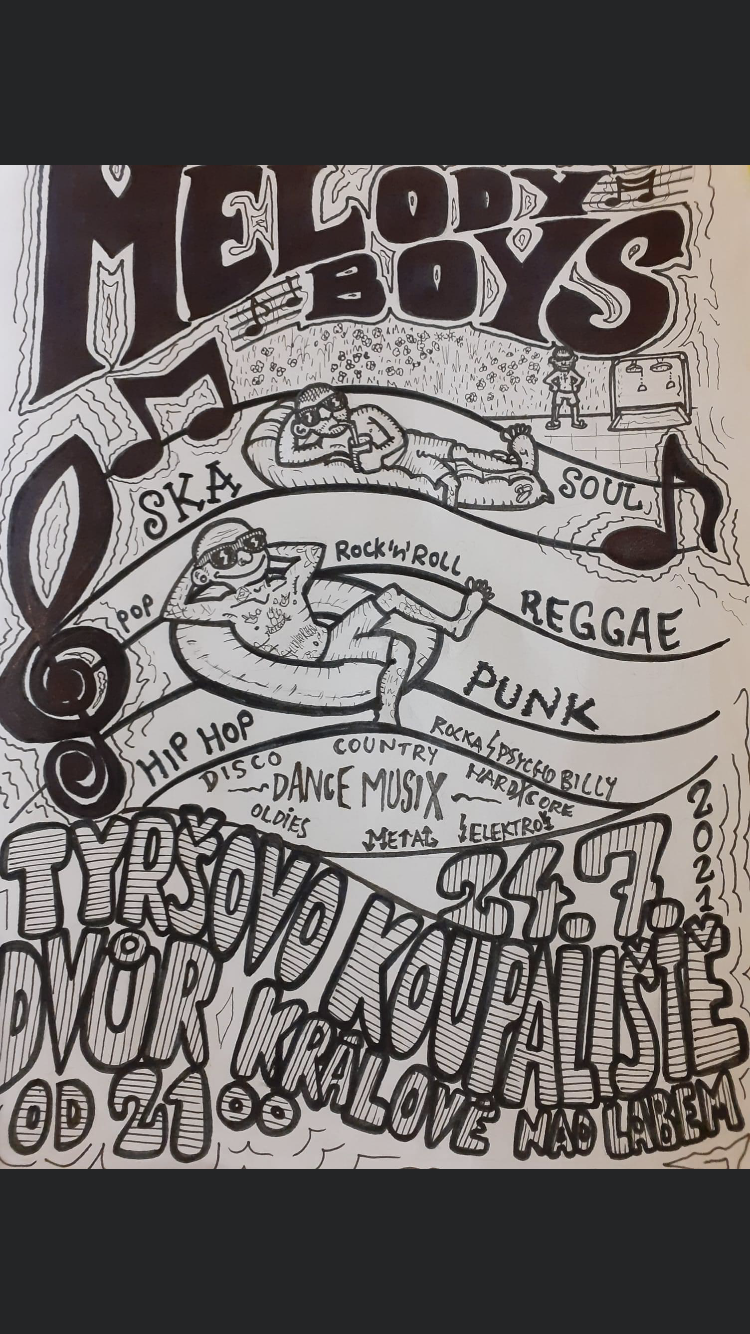 MELODY
BOYS
SKA
SOUL
ROCK'N'ROLL
POP
REGGAE
PUNK
HIP HOP
ROCKA PSYCHOBILLY
COUNTRY
DISCO
HARDCORE
DANCE MUSIX
OLDIES
METAL
ELEKTRO
24.7.
2021
TYRŠOVO KOUPALIŠTĚ
DVŮR KRÁLOVÉ NAD LABEM
OD 21 00